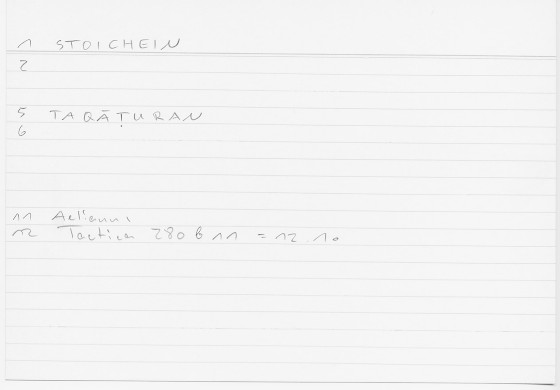 1 STOICHEIN
2
5 TAQĀṬURAN
6
11 Aelianus
12 Tactica 280 B 11 = 12.10